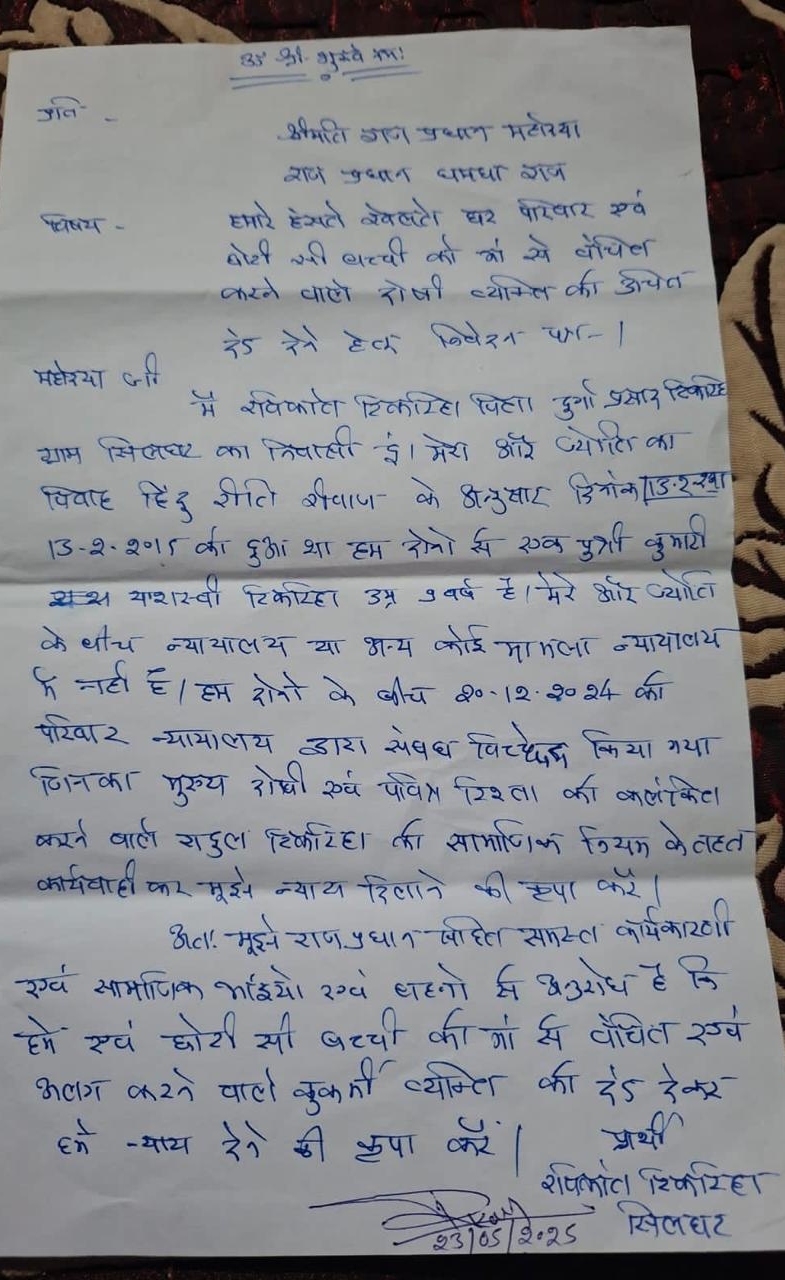 ॐ श्री गुरुवे नमः
प्रति -
श्रीमति राज प्रधान महोदया
राज प्रधान धमधा राज
विषय - हमारे हंसते खेलते घर परिवार एवं
छोटी सी बच्ची को मां से वंचित
करने वाले दोषी व्यक्ति को उचित
दंड देने हेतु निवेदन पत्र - ।
महोदया जी
मैं रविकांत टिकरिहा पिता दुर्गा प्रसाद टिकरिहा
ग्राम सिलघट का निवासी हूं। मेरा और ज्योति का
विवाह हिंदु रीति रीवाज के अनुसार दिनांक 13-2-
13-2-2015 को हुआ था हम दोनो से एक पुत्री कुमारी
यशस्वी टिकरिहा उम्र 9 वर्ष है। मेरे और ज्योति
के बीच न्यायालय या अन्य कोई मामला न्यायालय
में नहीं है। हम दोनो के बीच 20-12-2024 को
परिवार न्यायालय द्वारा संबंध विच्छेद किया गया
जिनका मुख्य दोषी एवं पवित्र रिश्ता को कलंकित
करने वाले राहुल टिकरिहा को सामाजिक नियम के तहत
कार्यवाही कर मुझे न्याय दिलाने की कृपा करें।
अतः मुझे राज प्रधान सहित समस्त कार्यकारणी
एवं सामाजिक भाईयो एवं बहनो से अनुरोध है कि
हमे एवं छोटी सी बच्ची को मां से वंचित एवं
अलग करने वाले कुकर्मी व्यक्ति को दंड देकर
हमे न्याय देने की कृपा करें।
प्रार्थी
रविकांत टिकरिहा
सिलघट
23/05/2025